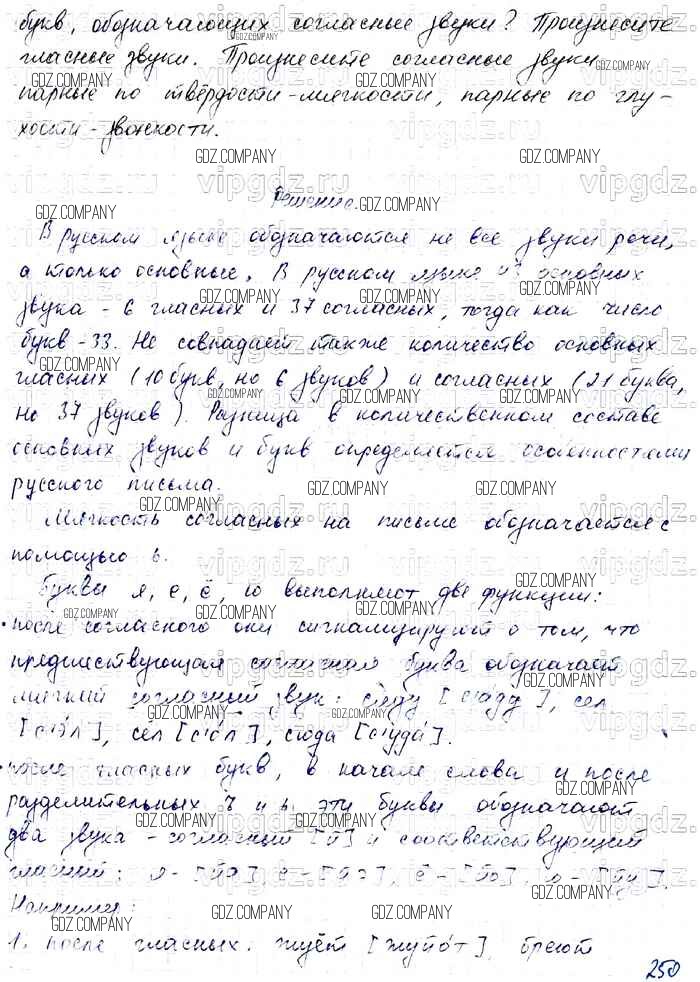 букв, обозначающих согласные звуки? Произнесите
гласные звуки. Произнесите согласные звуки
парные по твёрдости-мягкости, парные по глу-
хости-звонкости.
Решение.
В русском языке обозначаются не все звуки речи,
а только основные. В русском языке основных
звука - 6 гласных и 37 согласных, тогда как число
букв - 33. Не совпадает также количество основных
гласных (10 букв, но 6 звуков) и согласных (21 буква,
но 37 звуков). Разница в количественном составе
основных звуков и букв определяется особенностями
русского письма.
Мягкость согласных на письме обозначается с
помощью ь.
Буквы я, е, ё, ю выполняют две функции:
• после согласного они сигнализируют о том, что
предшествующая согласная буква обозначает
мягкий согласный звук: сяду [с'áду], сел
[с'о́л], сел [с'о́л], сюда [с'уда́].
• после гласных букв, в начале слова и после
разделительных ъ и ь эти буквы обозначают
два звука - согласный [й] и соответствующий
гласный: я - [йа], е - [йэ], ё - [йо], ю - [йу].
Например:
1. после гласных: жуёт [жуйо́т], бреют
250
GDZ.COMPANY
vipgdz.ru